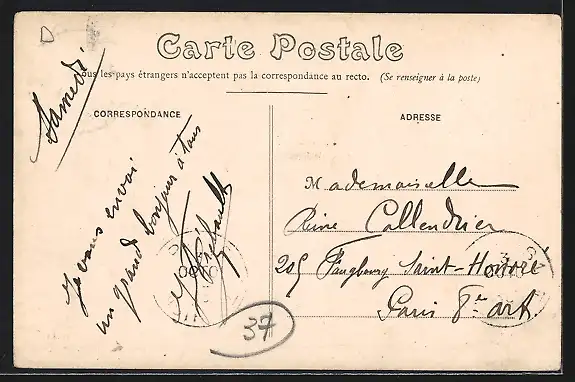 D
Carte Postale
Tous les pays étrangers n'acceptent pas la correspondance au recto. (Se renseigner à la poste)
Samedi
CORRESPONDANCE
Je vous envoi
un grand bonjour à tous
37
ADRESSE
Mademoiselle
Reine Callendrier
205 Faugbourg Saint-Honoré
Paris 8e arr